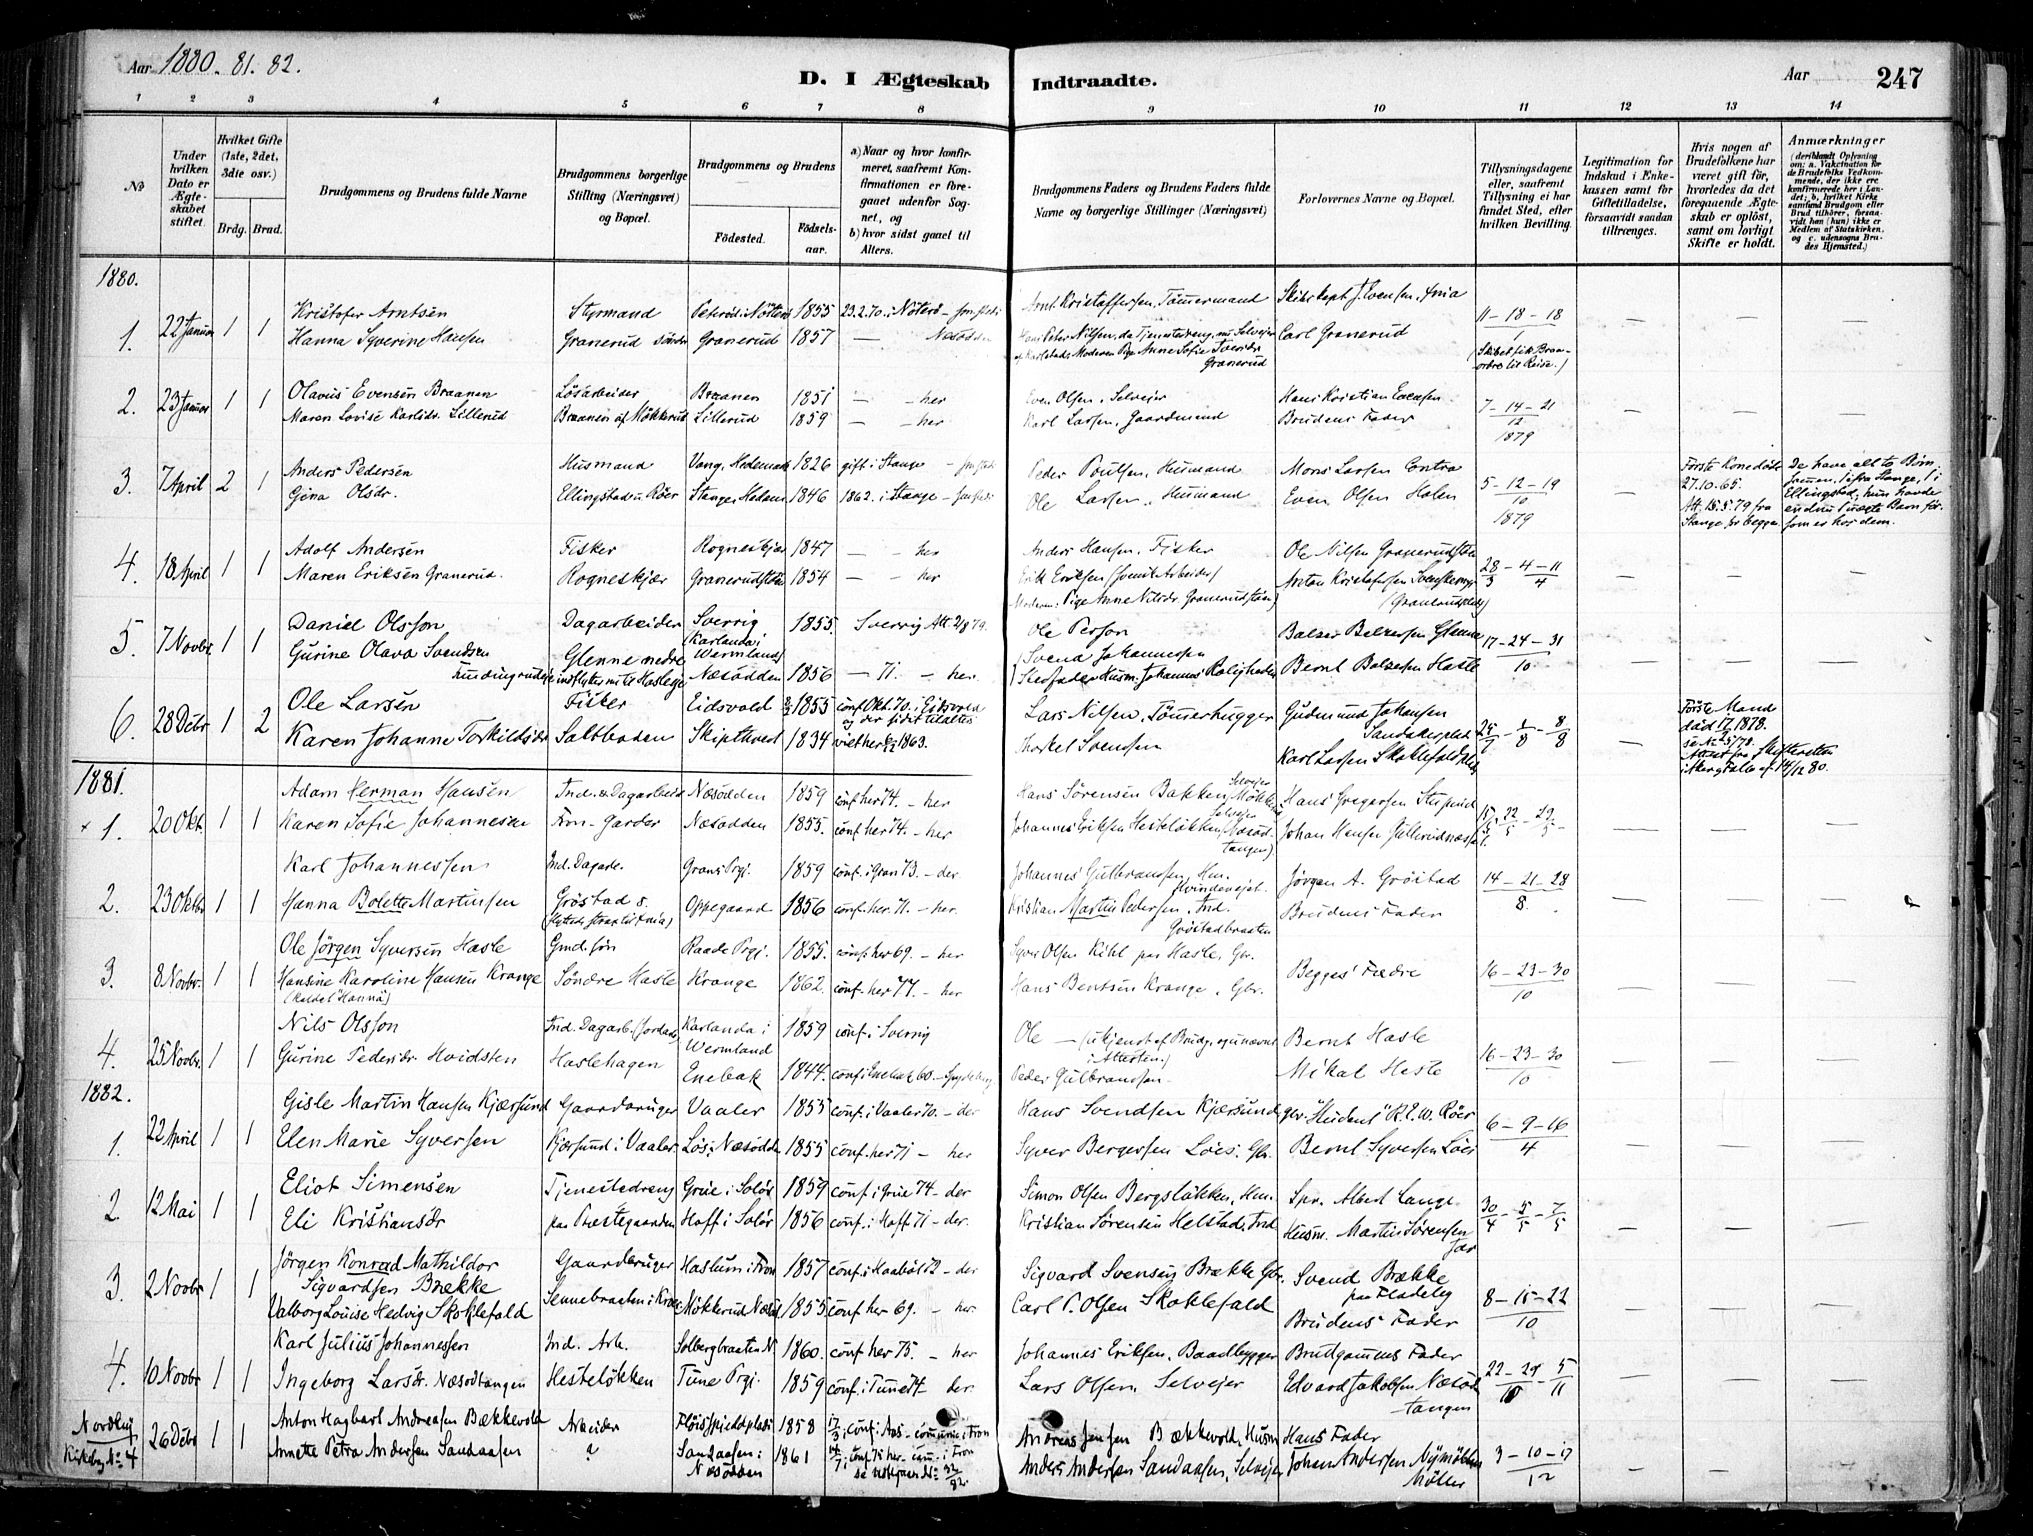 Aar 1880. 81. 82.
D. I Ægteskab Indtraadte.
Aar 247
1 2 3 4 5 6 7 8 9 10 11 12 13 14
No
Under hvilken Dato er Ægteskabet stiftet.
Hvilket Gifte (1ste, 2det, 3die osv.)
Brdg. Brud.
Brudgommens og Brudens fulde Navne
Brudgommens borgerlige Stilling (Næringsvei) og Bopæl.
Brudgommens og Brudens
Fødested. Fødselsaar.
a) Naar og hvor konfirmeret, saafremt Konfirmationen er foregaaet udenfor Sognet, og
b) hvor sidst gaaet til Alters.
Brudgommens Faders og Brudens Faders fulde Navne og borgerlige Stillinger (Næringsvei)
Forlovernes Navne og Bopæl.
Tillysningsdagene eller, saafremt Tillysning ei har fundet Sted, efter hvilken Bevilling.
Legitimation for Indskud i Enkekassen samt for Giftetilladelse, forsaavidt saadan tiltrænges.
Hvis nogen af Brudefolkene har været gift før, hvorledes da det foregaaende Ægteskab er opløst, samt om lovligt Skifte er holdt.
Anmærkninger
(deriblandt Oplysning om: a. Vakcination for de Brudefolks Vedkommende, der ikke ere konfirmerede her i Landet; b, hvilket Kirkesamfund Brudgom eller Brud tilhører, forsaavidt han (hun) ikke er Medlem af Statskirken, og c. udensogns Brudes Hjemsted.)
1880.
1. 22 Januar 1 1 Kristofer Arntsen Styrmand 1855 23.2.70. i Nøterø Arnt Kristoffersen, Tømmermand Skibskapt. J. Evensen, 11 - 18 - 18
Hanna Syverine Hansen Granerud søndre Granerud 1857 — Næsodden Hans Peter Nilsen, da Tjenestedreng, nu Selveier Carl Granerud 1
af Karlstad; Moderen Pige Anne Sofie Granerud
(Skibet fik Braa- ordre til Reise.)
2. 23 Januar 1 1 Olavus Evensen Braanen Løsarbeider Braanen 1851 — - her Even Olsen, Selveier Hans Kristian Evensen 7 - 14 - 21
Maren Lovise Karlsdr. Lillerud Braanen af Møkkerud Lillerud 1859 — - her Karl Larsen, Gaardmand Brudens Fader 12
1879
3. 7 April 2 1 Anders Pedersen Husmand Vang, Hedemark 1826 gift i Stange Peder Poulsen, Husmand Mons Larsen Entra 5 - 12 - 19
Gina Olsdr. Ellingstad u. Røer Stange, Hedem. 1846 1862. i Stange Ole Larsen, Husmand Even Olsen Holen 10
1879
Første Kone døde 27.10.65. Att. 15.5.79 fra Stange for begge.
De have alt to Børn sammen, 1 fra Stange, 1 i Ellingstad; hun havde endnu Barn før, som er hos dem.
4. 18 April 1 1 Adolf Andersen Fisker Rogneskjær 1847 — - her Anders Hansen, Fisker Ole Nilsen Granerudstøen 28/3 - 4 - 11/4
Maren Eriksen Granerud. Rogneskjær Granerudstøen 1854 — - her Erik Eriksen (Svensk Arbeider) Anton Kristofersen
Moderen: Pige Anne Nilsdr. Granerudstøen) (Granerudplads)
5. 7 Novbr 1 1 Daniel Olsson Dagarbeider Sverrig (Karlanda i Wermland) 1855. Sverrig Att. 2/8 79. Ole Person Balzer Balzersen Glenne 17 - 24 - 31
Gurine Olava Svendsen Glenne nedre Næsodden 1856 — 71. - her. (Svend Johannessen Bernt Balzersen Hasle 10
Stedfader Husm. Johannes
6. 28 Debr 1 2 Ole Larsen Fisker Eidsvold 1855 conf Okt. 70. i Eidsvold og der sidst tilalters Lars Nilsen, Tømmerhugger Gudmund Johansen Sandakerplads 25/7 - 1/8 - 8/8
Karen Johanne Torkildsdr Saltboden Skiptvedt 1834 viet her 1863. Thorkel Svensen Karl Larsen Skoklefald
Første Mand død 17 1878. se No 5/78. Attest fra Skifteretten i Aker & Follo af 14/12 80.
1881.
1. 20 Okt. 1 1 Adam Herman Hansen Ind. & Dagarbeid. Næsodden 1859 conf her 74. - her Hans Sørensen Bakken Selveier Hans Gregersen Stuperud 15 - 22 - 29
Karen Sofie Johannesen Næsodden 1855. conf. her 74. - her Johannes Eriksen Hesteløkken Selveier (Næsodtangen) Johan Hansen
2. 23 Oktbr 1 1 Karl Johannessen Ind. Dagarb. Grans Prgj. 1859 conf. i Gran 73. - der Johannes Gulbransen, Hm. Jørgen A. Grøstad 14 - 21 - 28
Hanna Bolette Martinsen Grøstad s. Oppegaard 1856 conf. her. 71. - her. Kristian Martin Pedersen, Ind. Grøstadbraaten Brudens Fader 8.
3. 8 Novbr. 1 1 Ole Jørgen Syversen Hasle Gmd. søn Raade Prgj. 1855. conf. her 69. - her Syver Olsen Kihl paa Hasle, Gbr. Begges' Fædre 16 - 23 - 30
Hansine Karoline Hansen Krange Søndre Hasle Krange 1862. conf. her 77. - her Hans Bentsen Krange, Gbr. 10
(kaldet "Hanna)
4. 25 Novbr. 1 1 Nils Olsson Ind. Dagarb. Karlanda i Wermland 1859 conf. i Sverrig Ole — (ukjendt af Brudg. og unævnt i Attesten.) Bernt Hasle 16 - 23 - 30
Gurine Pedersdr. Hvidsten Haslehagen Enebak 1844. conf i Enebak 60. Peder Gulbrandsen Mikal Hasle 10
1882.
1. 22 April 1 1 Gisle Martin Hansen Kjærsund Gaardbruger Vaaler 1855 conf. i Vaaler 70. - der Hans Svendsen Kjærsund, gbr. "Student" R. E. W. Røer 6 - 9 - 16
Elen Marie Syversen Kjærsund i Vaaler. Løs i Næsodden 1855 conf. her 71 - her Syver Bergersen Løes. Gbr. Bernt Syversen Løes 4
2. 12 Mai 1 1 Eliot Simensen Tjenestedreng Grue i Solør 1859 conf. i Grue 74 - der Simon Olsen Bergsløkken, Hm. Spr. Albert Lange 30/4 - 5/5 - 7/5
Eli Kristiansdr paa Præstegaarden Hoff i Solør 1856 conf. i Hoff 71 - der. Kristian Sørensen Helstad, Ind. Husm. Martin Sørensen
3. 2 Novbr 1 1 Jørgen Konrad Mathildor Sigvardsen Brække Gaardbruger Haslum i Fron 1857 conf. i 72 - der Sigvard Svensen Brække Gbr. Svend Brække paa Fladeby 8 - 15 - 22
Valborg Louise Hedvig Skoklefald Sennebraaten i Møkkerud Næsod. 1855 conf her 69. - her. Carl P. Olsen Skoklefald Brudens' Fader 10
4. 10 Novbr 1 1 Karl Julius Johannessen Ind. Arb. Solbergbraaten N. 1860. conf her 75. - her Johannes Eriksen, Baadbygger Brudgommens Fader 22 - 29 - 5
Ingeborg Larsdr. Næsodtangen Hesteløkken Tune Prgj. 1859 conf. i Tune 74 - der. Lars Olsen, Selveier Edvard Jakobsen Næsodtangen 10 11
Nordby Kirkebog No 4 26 Debr 1 1 Anton Hagbart Andreasen Bækkevold Arbeider 1858 conf i Aas - commun i Fron Andreas Jensen Bækkevold, Husm Hans Fader 3 - 10 - 17
Annette Petra Andersen Sandaasen ? Sandaasen i Næsodden 1861 conf. 75 her - com. i Fron Anders Andersen Sandaasen, Selveier Johan Andersen Nymøllen Møller 12